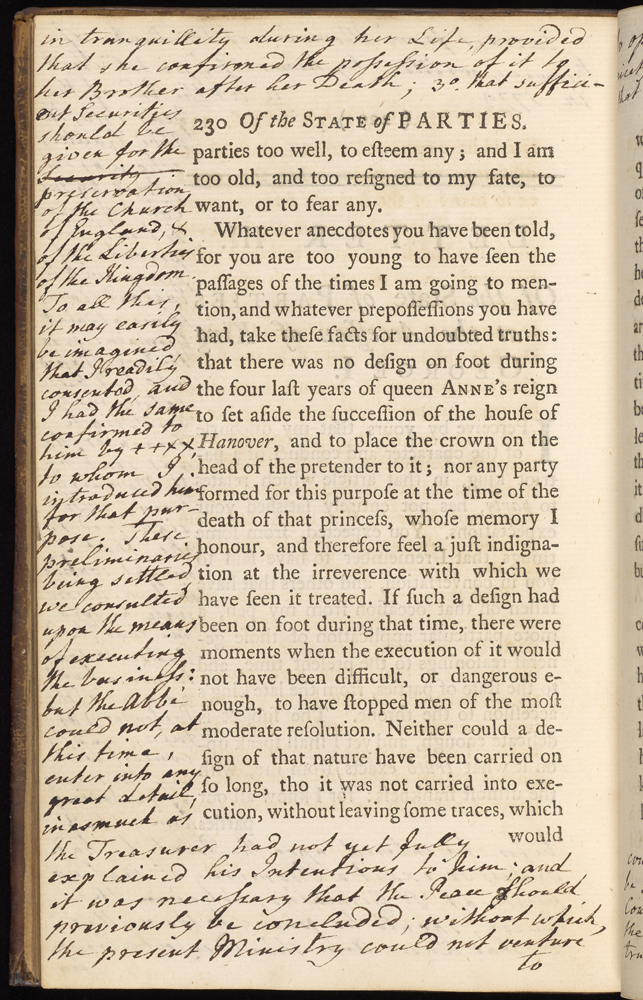 in tranquillity during her Life, provided
that she confirmed the possession of it to
her Brother after her Death; 3o. that suffici-
ent Securities
should be
given for the
Security
preservation
of the Church
of England, &
of the Liberties
of the Kingdom.
To all this,
it may easily
be imagined
that I readily
consented, and
I had the same
confirmed to
him by ++××,
to whom I
introduced him
for that pur-
pose. These
preliminaries
being settled
we consulted
upon the means
of executing
the business:
but the Abbé
could not, at
this time,
enter into any
great detail,
inasmuch as
the Treasurer had not yet fully
explained his Intentions to him; and
it was necessary that the Peace should
previously be concluded; without which,
the present Ministry could not venture
to
230 Of the STATE of PARTIES.
parties too well, to eſteem any; and I am
too old, and too reſigned to my fate, to
want, or to fear any.
Whatever anecdotes you have been told,
for you are too young to have ſeen the
paſſages of the times I am going to men-
tion, and whatever prepoſſeſſions you have
had, take theſe facts for undoubted truths:
that there was no deſign on foot during
the four laſt years of queen ANNE's reign
to ſet aſide the ſucceſſion of the houſe of
Hanover, and to place the crown on the
head of the pretender to it; nor any party
formed for this purpoſe at the time of the
death of that princeſs, whoſe memory I
honour, and therefore feel a juſt indigna-
tion at the irreverence with which we
have ſeen it treated. If ſuch a deſign had
been on foot during that time, there were
moments when the execution of it would
not have been difficult, or dangerous e-
nough, to have ſtopped men of the moſt
moderate reſolution. Neither could a de-
ſign of that nature have been carried on
ſo long, tho it was not carried into exe-
cution, without leaving ſome traces, which
would